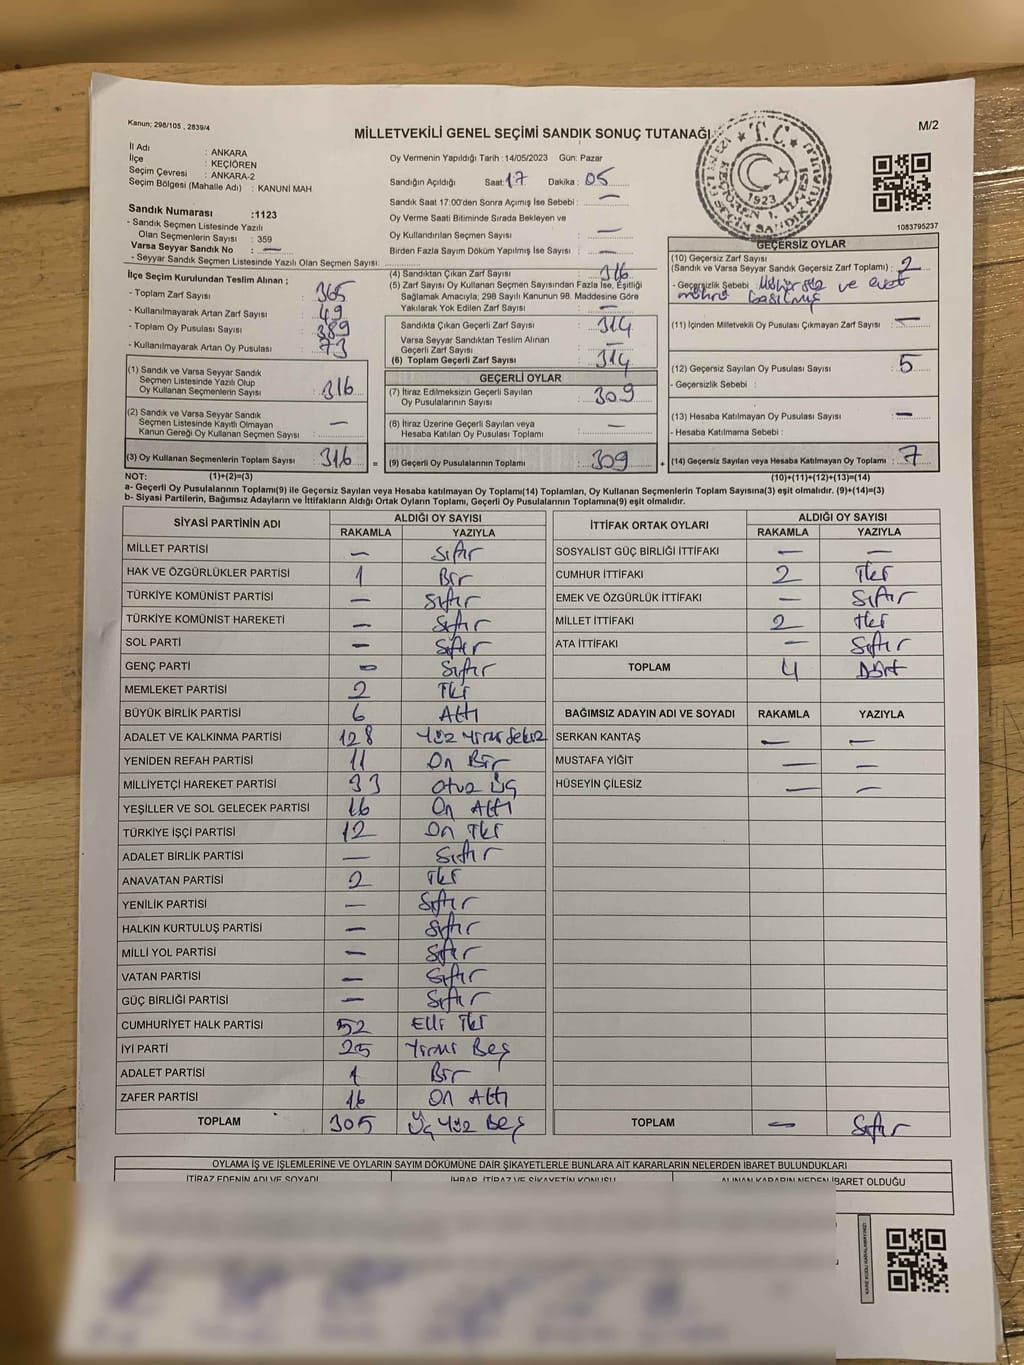 Kanun; 298/105 , 2839/4
MİLLETVEKİLİ GENEL SEÇİMİ SANDIK SONUÇ TUTANAĞI
M/2
İl Adı : ANKARA
İlçe : KEÇİÖREN
Seçim Çevresi : ANKARA-2
Seçim Bölgesi (Mahalle Adı) : KANUNİ MAH
Sandık Numarası :1123
- Sandık Seçmen Listesinde Yazılı
Olan Seçmenlerin Sayısı : 359
Varsa Seyyar Sandık No : —
- Seyyar Sandık Seçmen Listesinde Yazılı Olan Seçmen Sayısı:
Oy Vermenin Yapıldığı Tarih : 14/05/2023 Gün: Pazar
Sandığın Açıldığı Saat: 17 Dakika : 05
Sandık Saat 17:00'den Sonra Açımış İse Sebebi : —
Oy Verme Saati Bitiminde Sırada Bekleyen ve
Oy Kullandırılan Seçmen Sayısı : —
Birden Fazla Sayım Döküm Yapılmış İse Sayısı : —
T.C.
1923
1083795237
İlçe Seçim Kurulundan Teslim Alınan ;
- Toplam Zarf Sayısı : 365
- Kullanılmayarak Artan Zarf Sayısı : 49
- Toplam Oy Pusulası Sayısı : 389
- Kullanılmayarak Artan Oy Pusulası : 73
(1) Sandık ve Varsa Seyyar Sandık
Seçmen Listesinde Yazılı Olup
Oy Kullanan Seçmenlerin Sayısı : 316
(2) Sandık ve Varsa Seyyar Sandık
Seçmen Listesinde Kayıtlı Olmayan
Kanun Gereği Oy Kullanan Seçmen Sayısı : —
(3) Oy Kullanan Seçmenlerin Toplam Sayısı : 316 =
(4) Sandıktan Çıkan Zarf Sayısı : 316
(5) Zarf Sayısı Oy Kullanan Seçmen Sayısından Fazla İse, Eşitliği
Sağlamak Amacıyla; 298 Sayılı Kanunun 98. Maddesine Göre
Yakılarak Yok Edilen Zarf Sayısı : —
Sandıkta Çıkan Geçerli Zarf Sayısı : 314
Varsa Seyyar Sandıktan Teslim Alınan
Geçerli Zarf Sayısı : —
(6) Toplam Geçerli Zarf Sayısı : 314
GEÇERLİ OYLAR
(7) İtiraz Edilmeksizin Geçerli Sayılan
Oy Pusulalarının Sayısı : 309
(8) İtiraz Üzerine Geçerli Sayılan veya
Hesaba Katılan Oy Pusulası Toplamı : —
(9) Geçerli Oy Pusulalarının Toplamı : 309 +
GEÇERSİZ OYLAR
(10) Geçersiz Zarf Sayısı
(Sandık ve Varsa Seyyar Sandık Geçersiz Zarf Toplamı) : 2
- Geçersizlik Sebebi : Mühürsüz ve evet
mührü basılmış
(11) İçinden Milletvekili Oy Pusulası Çıkmayan Zarf Sayısı : —
(12) Geçersiz Sayılan Oy Pusulası Sayısı : 5
- Geçersizlik Sebebi :
(13) Hesaba Katılmayan Oy Pusulası Sayısı : —
- Hesaba Katılmama Sebebi :
(14) Geçersiz Sayılan veya Hesaba Katılmayan Oy Toplamı : 7
NOT: (1)+(2)=(3) (10)+(11)+(12)+(13)=(14)
a- Geçerli Oy Pusulalarının Toplamı(9) ile Geçersiz Sayılan veya Hesaba katılmayan Oy Toplamı(14) Toplamları, Oy Kullanan Seçmenlerin Toplam Sayısına(3) eşit olmalıdır. (9)+(14)=(3)
b- Siyasi Partilerin, Bağımsız Adayların ve İttifakların Aldığı Ortak Oyların Toplamı, Geçerli Oy Pusulalarının Toplamına(9) eşit olmalıdır.
SİYASİ PARTİNİN ADI ALDIĞI OY SAYISI
RAKAMLA YAZIYLA
MİLLET PARTİSİ — Sıfır
HAK VE ÖZGÜRLÜKLER PARTİSİ 1 Bir
TÜRKİYE KOMÜNİST PARTİSİ — Sıfır
TÜRKİYE KOMÜNİST HAREKETİ — Sıfır
SOL PARTİ — Sıfır
GENÇ PARTİ — Sıfır
MEMLEKET PARTİSİ 2 İki
BÜYÜK BİRLİK PARTİSİ 6 Altı
ADALET VE KALKINMA PARTİSİ 128 Yüz Yirmi Sekiz
YENİDEN REFAH PARTİSİ 11 On Bir
MİLLİYETÇİ HAREKET PARTİSİ 33 Otuz Üç
YEŞİLLER VE SOL GELECEK PARTİSİ 16 On Altı
TÜRKİYE İŞÇİ PARTİSİ 12 On İki
ADALET BİRLİK PARTİSİ — Sıfır
ANAVATAN PARTİSİ 2 İki
YENİLİK PARTİSİ — Sıfır
HALKIN KURTULUŞ PARTİSİ — Sıfır
MİLLİ YOL PARTİSİ — Sıfır
VATAN PARTİSİ — Sıfır
GÜÇ BİRLİĞİ PARTİSİ — Sıfır
CUMHURİYET HALK PARTİSİ 52 Elli İki
İYİ PARTİ 25 Yirmi Beş
ADALET PARTİSİ 1 Bir
ZAFER PARTİSİ 16 On Altı
TOPLAM 305 Üç Yüz Beş
İTTİFAK ORTAK OYLARI ALDIĞI OY SAYISI
RAKAMLA YAZIYLA
SOSYALİST GÜÇ BİRLİĞİ İTTİFAKI — —
CUMHUR İTTİFAKI 2 İki
EMEK VE ÖZGÜRLÜK İTTİFAKI — Sıfır
MİLLET İTTİFAKI 2 İki
ATA İTTİFAKI — Sıfır
TOPLAM 4 Dört
BAĞIMSIZ ADAYIN ADI VE SOYADI RAKAMLA YAZIYLA
SERKAN KANTAŞ — —
MUSTAFA YİĞİT — —
HÜSEYİN ÇİLESİZ — —
TOPLAM — Sıfır
OYLAMA İŞ VE İŞLEMLERİNE VE OYLARIN SAYIM DÖKÜMÜNE DAİR ŞİKAYETLERLE BUNLARA AİT KARARLARIN NELERDEN İBARET BULUNDUKLARI
İTİRAZ EDENİN ADI VE SOYADI İHBAR, İTİRAZ VE ŞİKAYETİN KONUSU ALINAN KARARIN NEDEN İBARET OLDUĞU